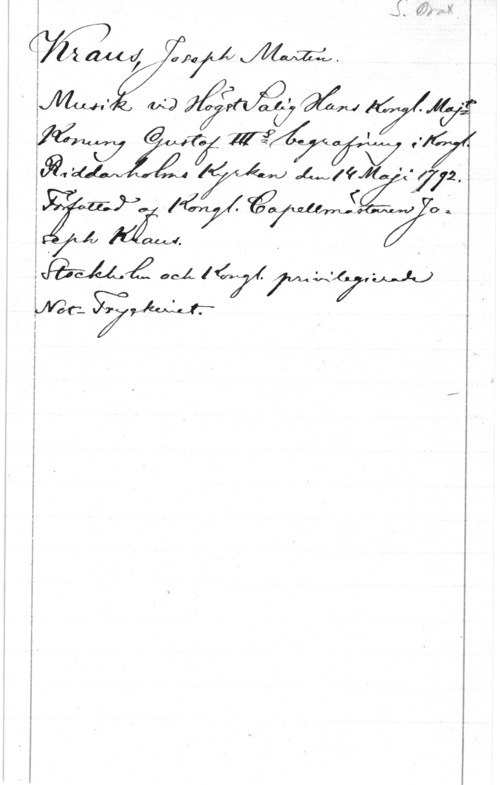 S. Orat
Kraus, Joseph Martin.
Musik vid Högst Salig Hans Kongl. Majts
Konung Gustaf III:s begrafning i Kongl.
Riddarholms Kyrkan den 14 Maji 1792.
Författad af Kongl. Capellmästaren Jo=
seph Kraus.
Stockholm och Kongl. privilegierade
Not=Tryckeriet.